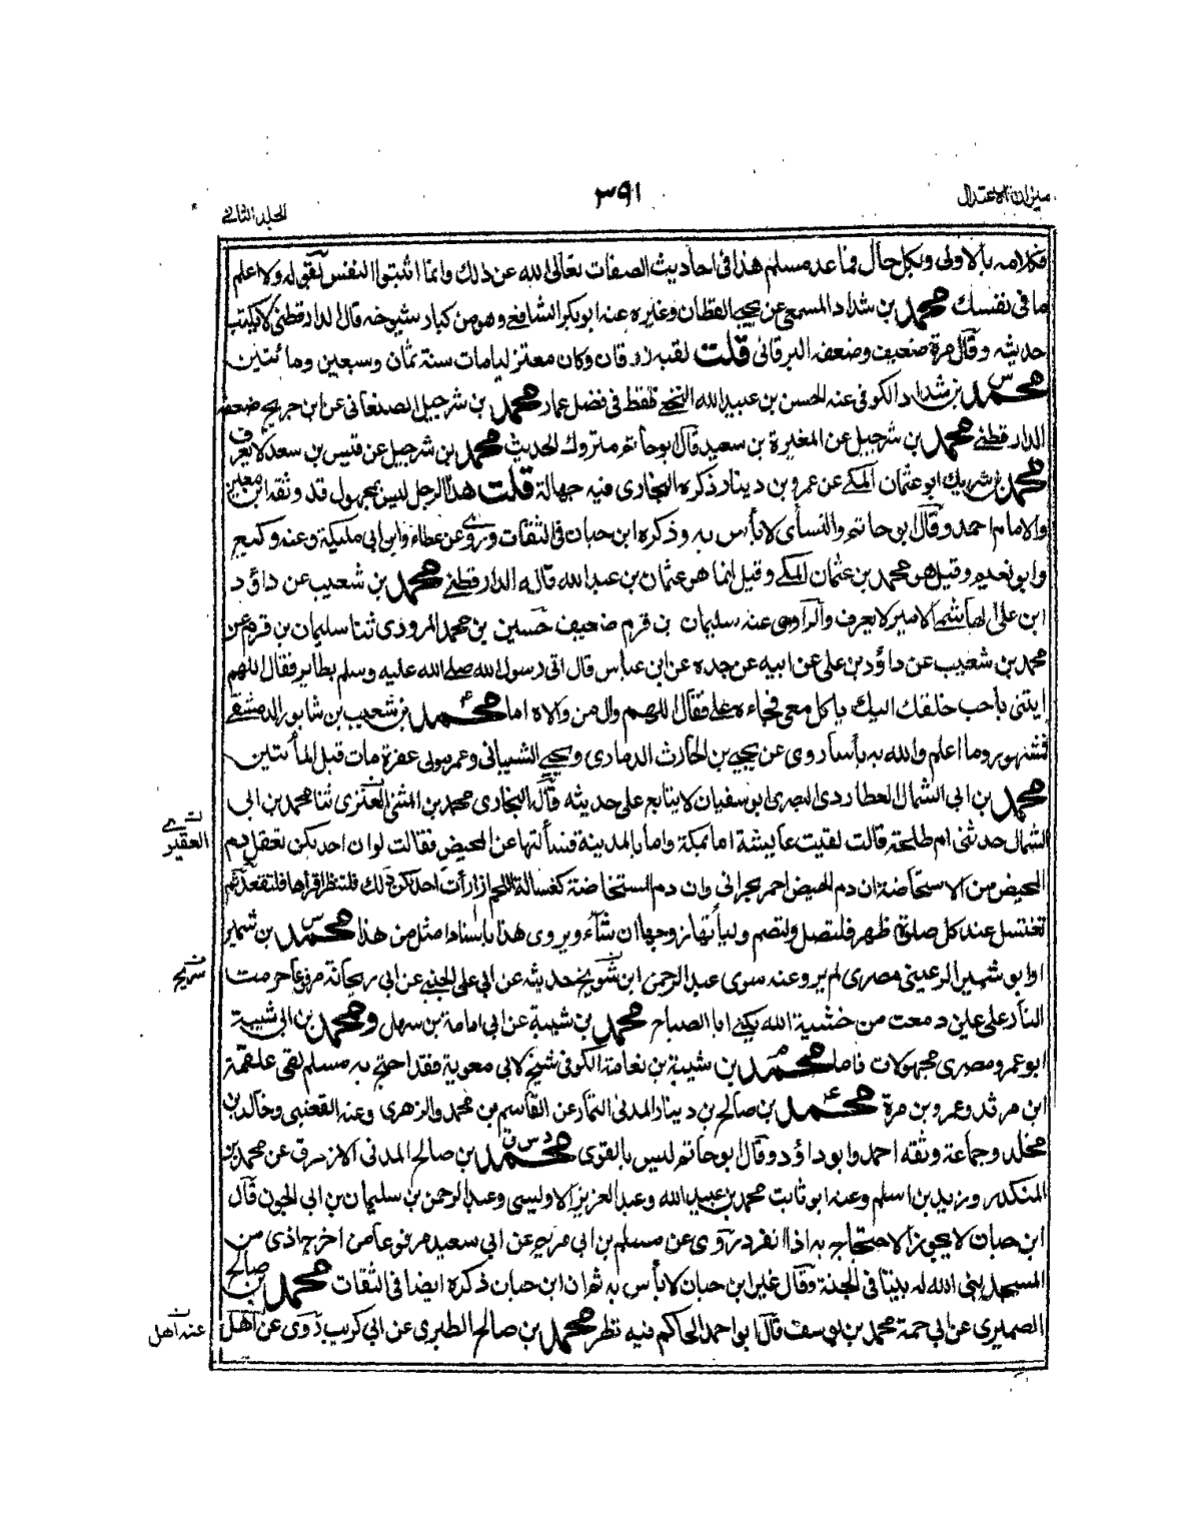 ميزان الاعتدال
٣٩١
الجلد الثاني
فكلامه بالاولى وبكل حال فما عد مسلم هذا فى احاديث الصفات تعالى الله عن ذلك وانما اثبتوا النفس لقوله ولا اعلم
ما فى نفسك محمد بن شداد المسمعى عن يحيى القطان وغيره عنه ابو بكر الشافعي وهو من كبار شيوخه قال الدارقطنى لا يكتب
حديثه وقال مرة ضعيف وضعفه البرقانى قلت لقبه زرقان وكان معتزليا مات سنة ثمان وسبعين ومائتين
محمد بن شداد الكوفى عنه الحسن بن عبيد الله النخعي فقط فى فضل عمار محمد بن شرحبيل الصنعانى عن ابن جريج ضعفه
الدارقطني محمد بن شرحبيل عن المغيرة بن سعيد قال ابو حاتم متروك الحديث محمد بن شرحبيل عن قيس بن سعد لا يعرف
محمد بن شريك ابو عثمان المكي عن عمرو بن دينار ذكره البخارى فيه جهالة قلت هذا الرجل ليس بمجهول قد وثقه ابن معين
والامام احمد وقال ابو حاتم والنسأى لا بأس به وذكره ابن حبان فى الثقات وروى عن عطاء وابن ابى مليكة وعنه وكيع
وابو نعيم وقيل هو محمد بن عثمان المكي وقيل انما هو عثمان بن عبد الله قاله الدارقطني محمد بن شعيب عن داؤد
ابن على الهاشمى الامير لا يعرف والراوى عنه سليمان بن قرم ضعيف حسين بن محمد المروذى ثنا سليمان بن قرم عن
محمد بن شعيب عن داؤد بن على عن ابيه عن جده عن ابن عباس قال اتى رسول الله صلى الله عليه وسلم بطاير فقال اللهم
ايتنى باحب خلقك اليك ياكل معى فجاءه على فقال اللهم وال من والاه اما محمد بن شعيب بن شابور الدمشقي
فمشهور وما اعلم والله به بأسا روى عن يحيى بن الحارث الذمارى ويحيى الشيبانى وعمر مولى غفرة مات قبل المأتين
محمد بن ابى الشمال العطاردى البصرى ابو سفيان لا يتابع على حديثه قاله البخارى محمد بن المثنى العنزى ثنا محمد بن ابى
الشمال حدثنى ام طلحة قالت لقيت عايشة اما بمكة واما بالمدينة فسألتها عن المحيض فقالت لو ان احدكن تعقل دم
المحيض من الاستحاضة ان دم المحيض احمر بحرانى وان دم المستحاضة كغسالة اللحم اذا رأت احدكن ذلك فلتنظر اقراها فلتقعد ثم
تغتسل عند كل صلوة ظهر فلتصل ولتصم وليأتها زوجها ان شآء ويروى هذا باسناد امثل من هذا محمد بن شمير
او ابو شمير الرعينى مصرى لم يرو عنه سوى عبد الرحمن ابن شريح حديثه عن ابى على الجنبي عن ابى ريحانة مرفوعا حرمت
النار على عين دمعت من خشية الله يكنى ابا الصباح محمد بن شيبة عن ابى امامة بن سهل ومحمد بن ابى شيبة
ابو عمرو مصرى مجهولان فاما محمد بن شيبة بن نعامة الكوفى شيخ لابى معوية فقد احتج به مسلم لقى علقمة
ابن مرثد وعمرو بن مرة محمد بن صالح بن دينار المدنى التمار عن القاسم بن محمد والزهرى وعنه القعنبى وخالد بن
مخلد وجماعة وثقه احمد وابو داؤد وقال ابو حاتم ليس بالقوى محمد بن صالح المدنى الازرق عن محمد بن
المنكدر وزيد بن اسلم وعنه ابو ثابت محمد بن عبيد الله وعبد العزيز الاوليسى وعبد الرحمن بن سليمان بن ابى الجون قال
ابن حبان لا يجوز الاحتجاج به اذا انفرد روى عن مسلم بن ابى مريم عن ابى سعيد مرفوعا من اخرج اذى من
المسجد بنى الله له بيتا فى الجنة وقال غير ابن حبان لا بأس به ثم ان ابن حبان ذكره ايضا فى الثقات محمد بن صالح
الصميرى عن ابى حمة محمد بن يوسف قال ابو احمد الحاكم فيه نظر محمد بن صالح الطبرى عن ابى كريب روى عن اهل
العقير
شريح
عنه اهل